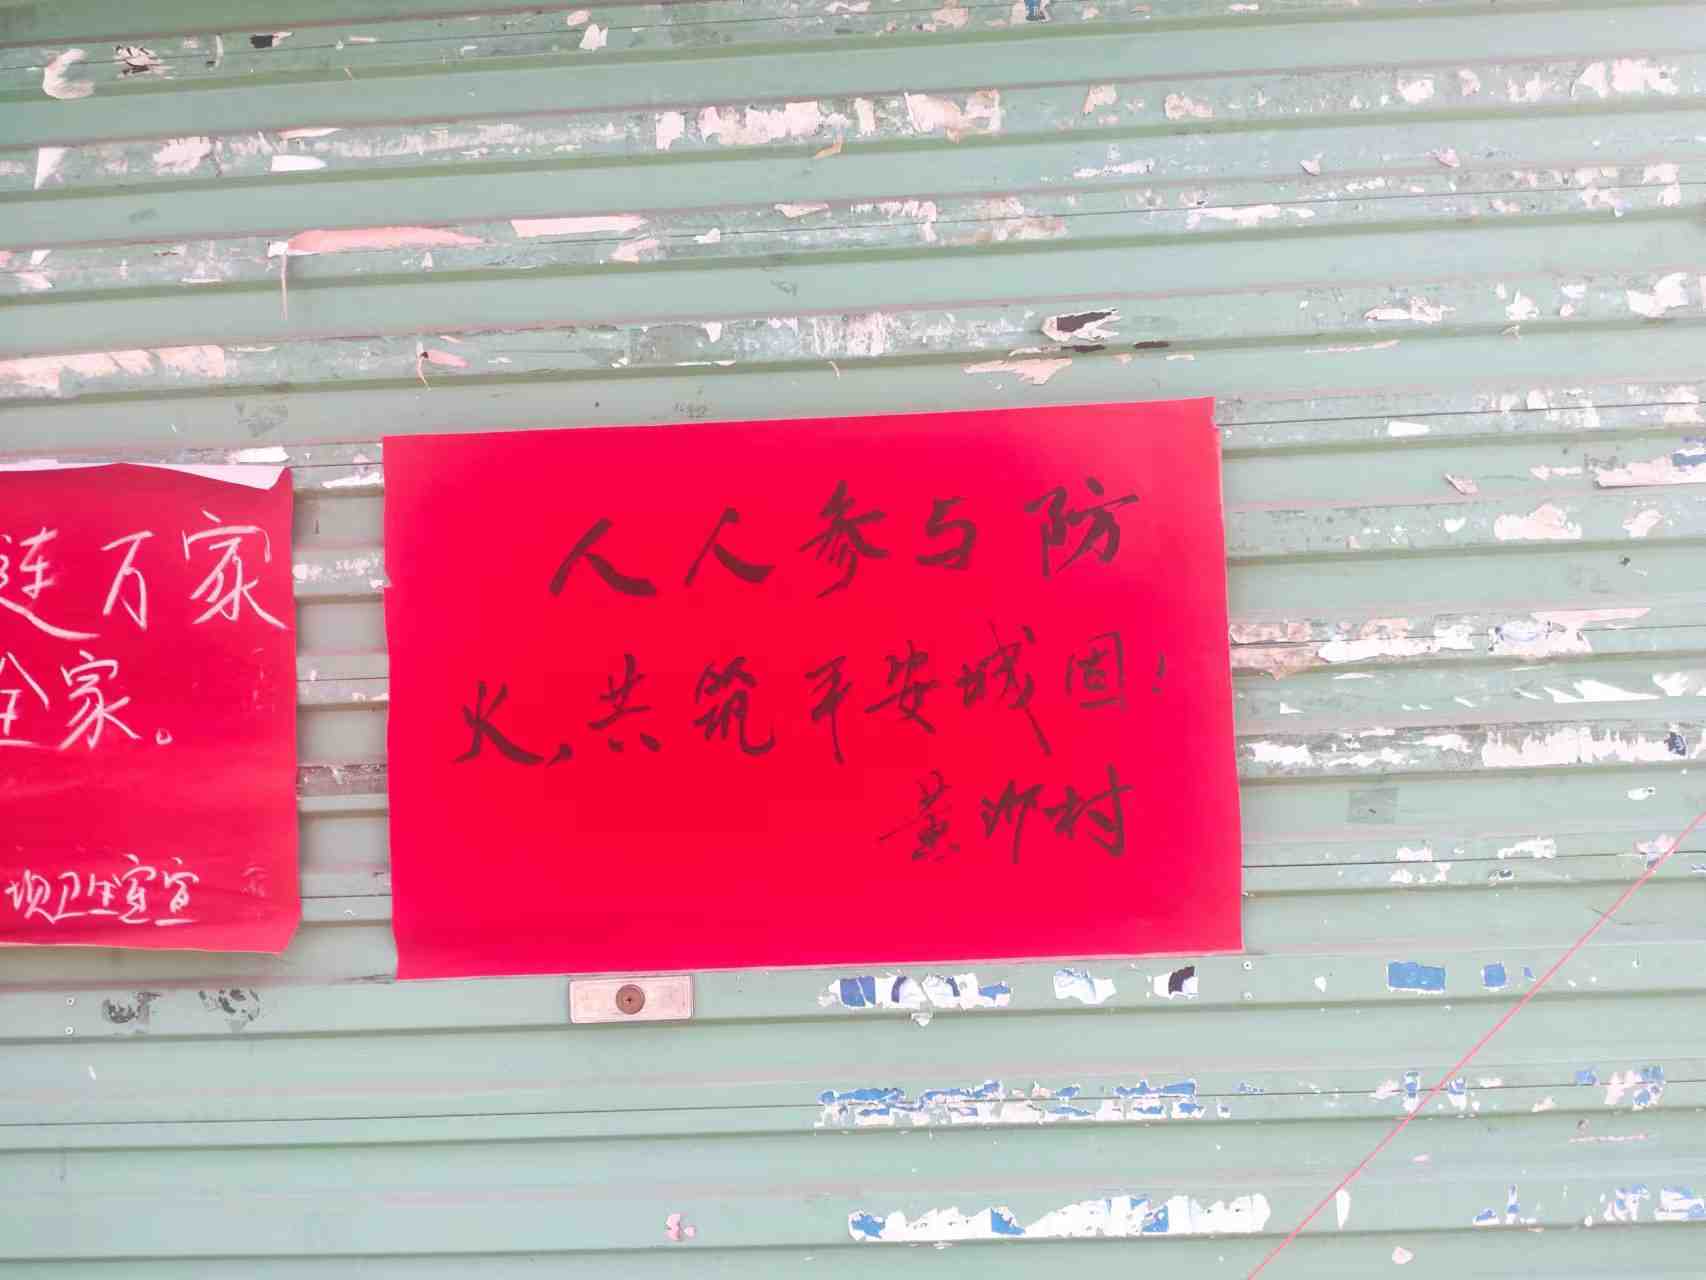 连万家
全家。
坝卫生室宣
人人参与防
火,共筑平安城固!
黄沙村